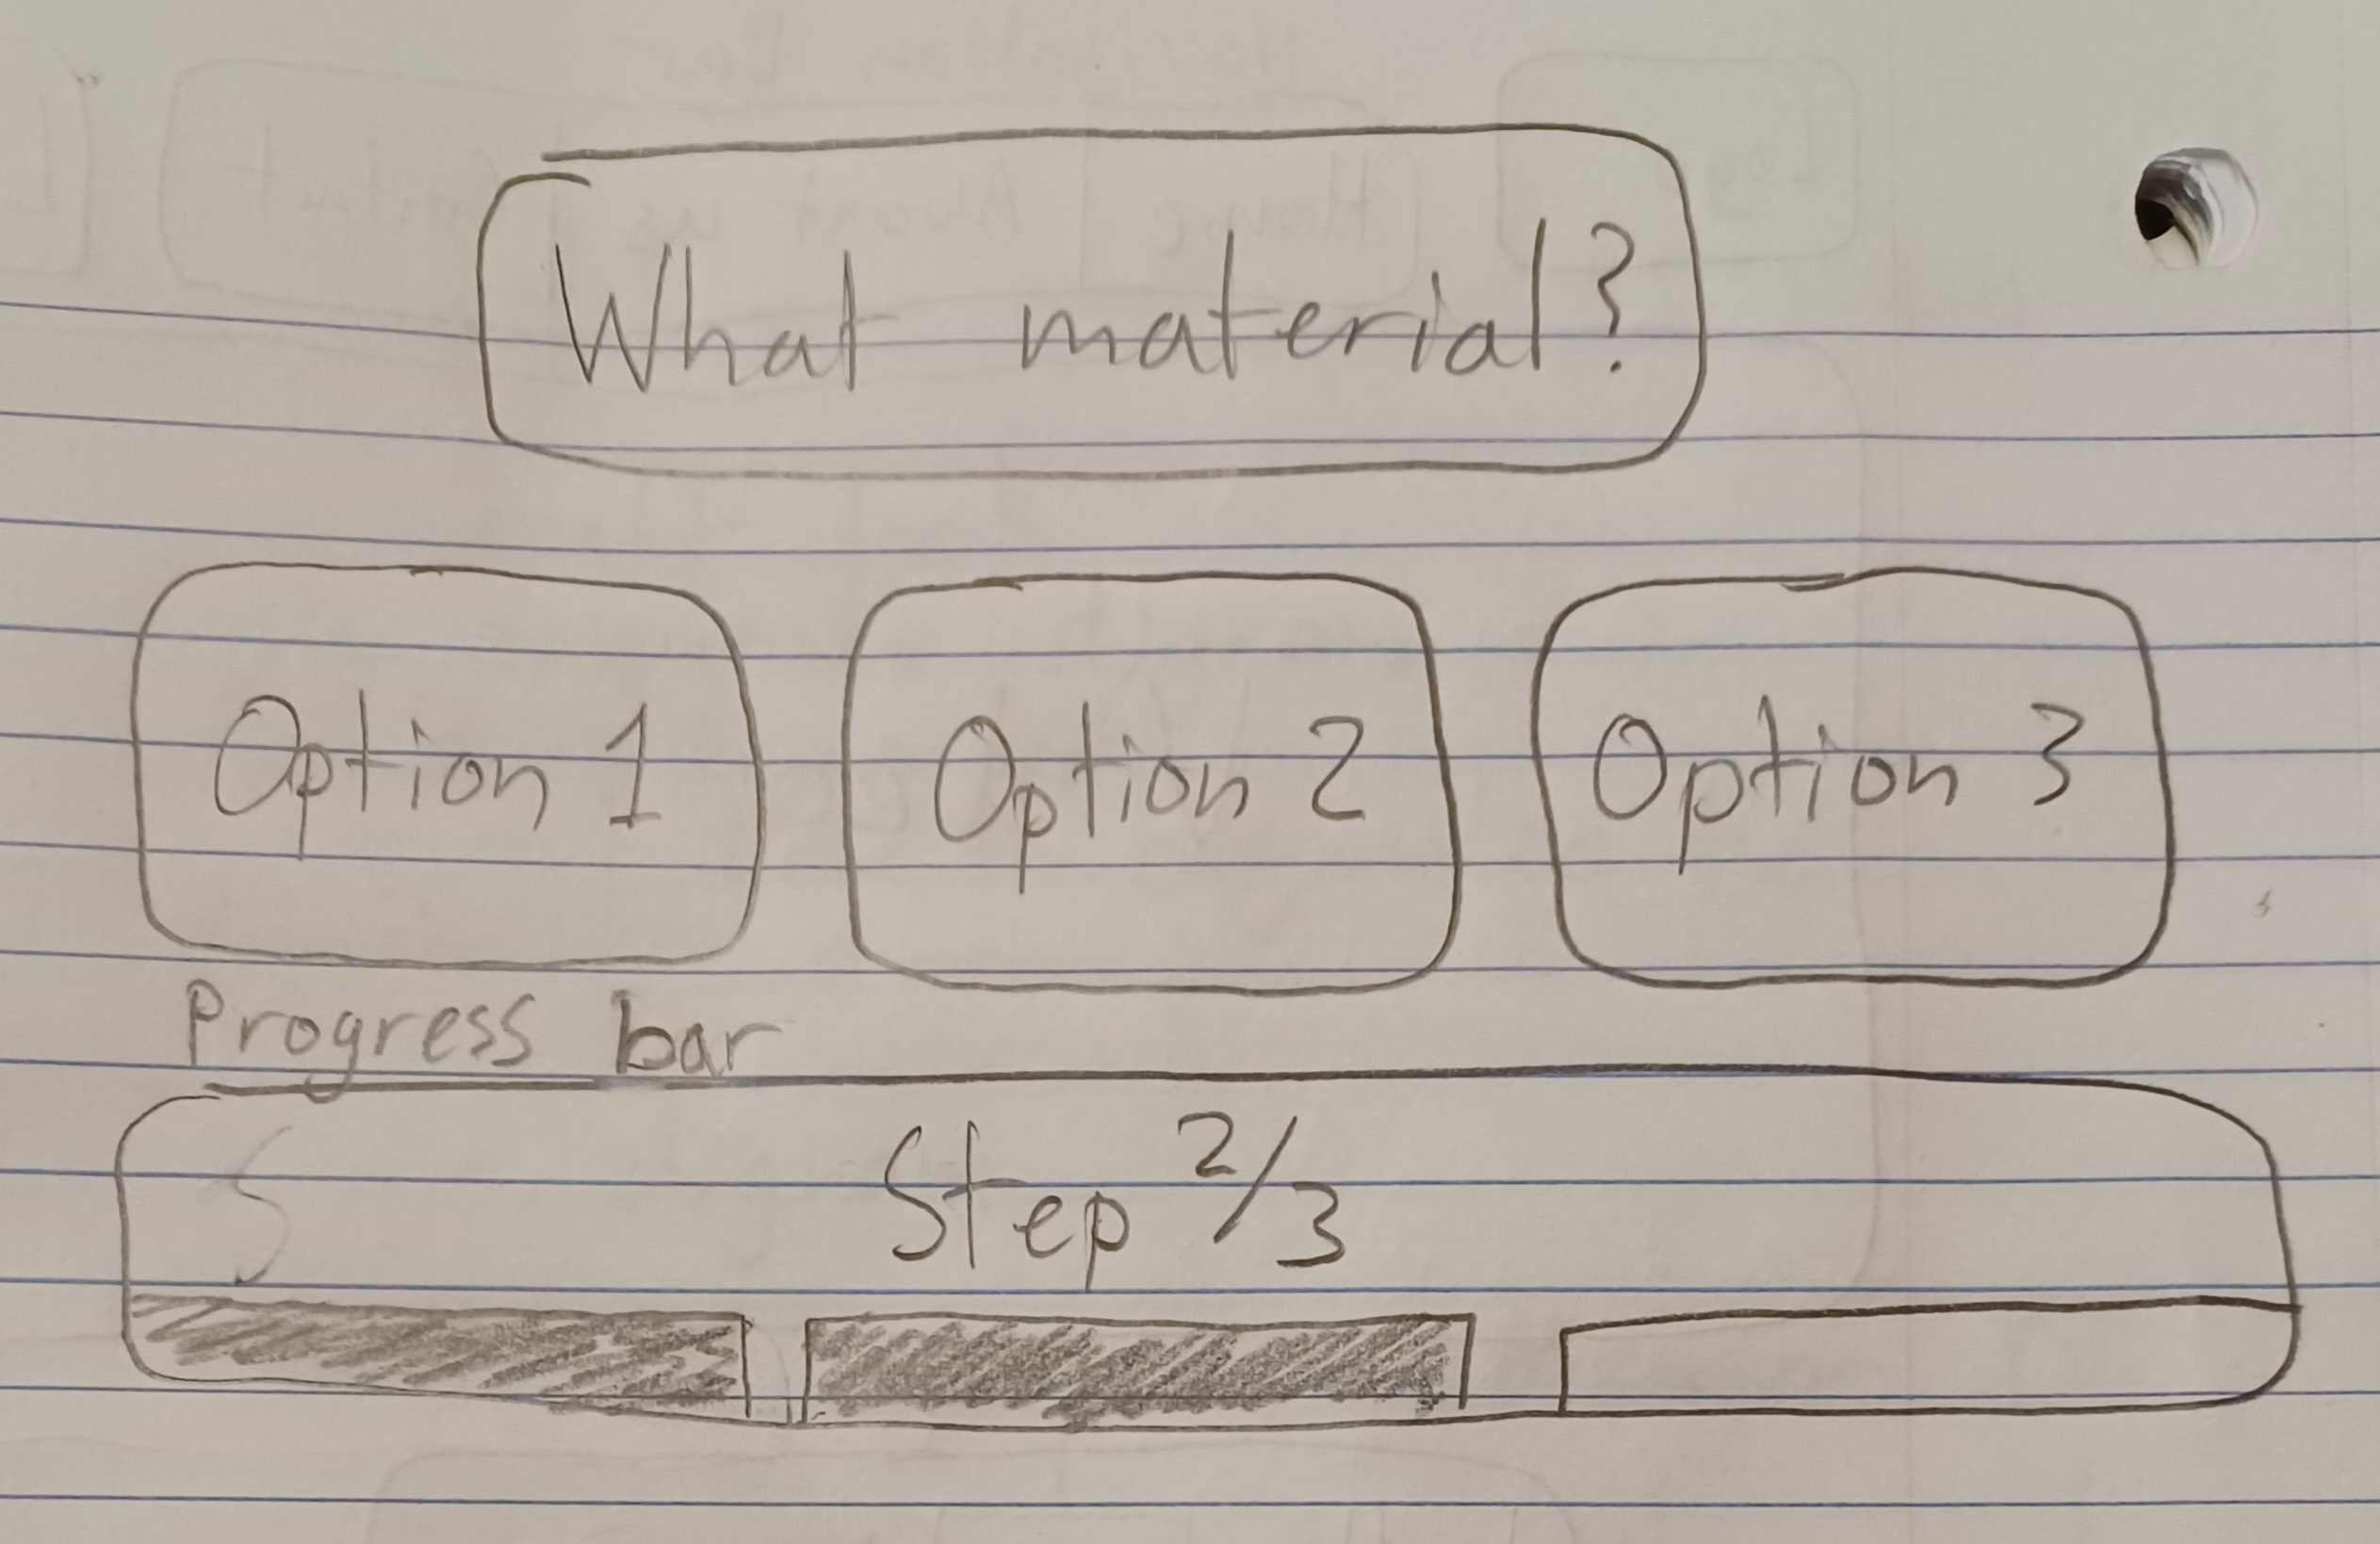 What material?
Option 1 Option 2 Option 3
Progress bar
S
Step 2/3